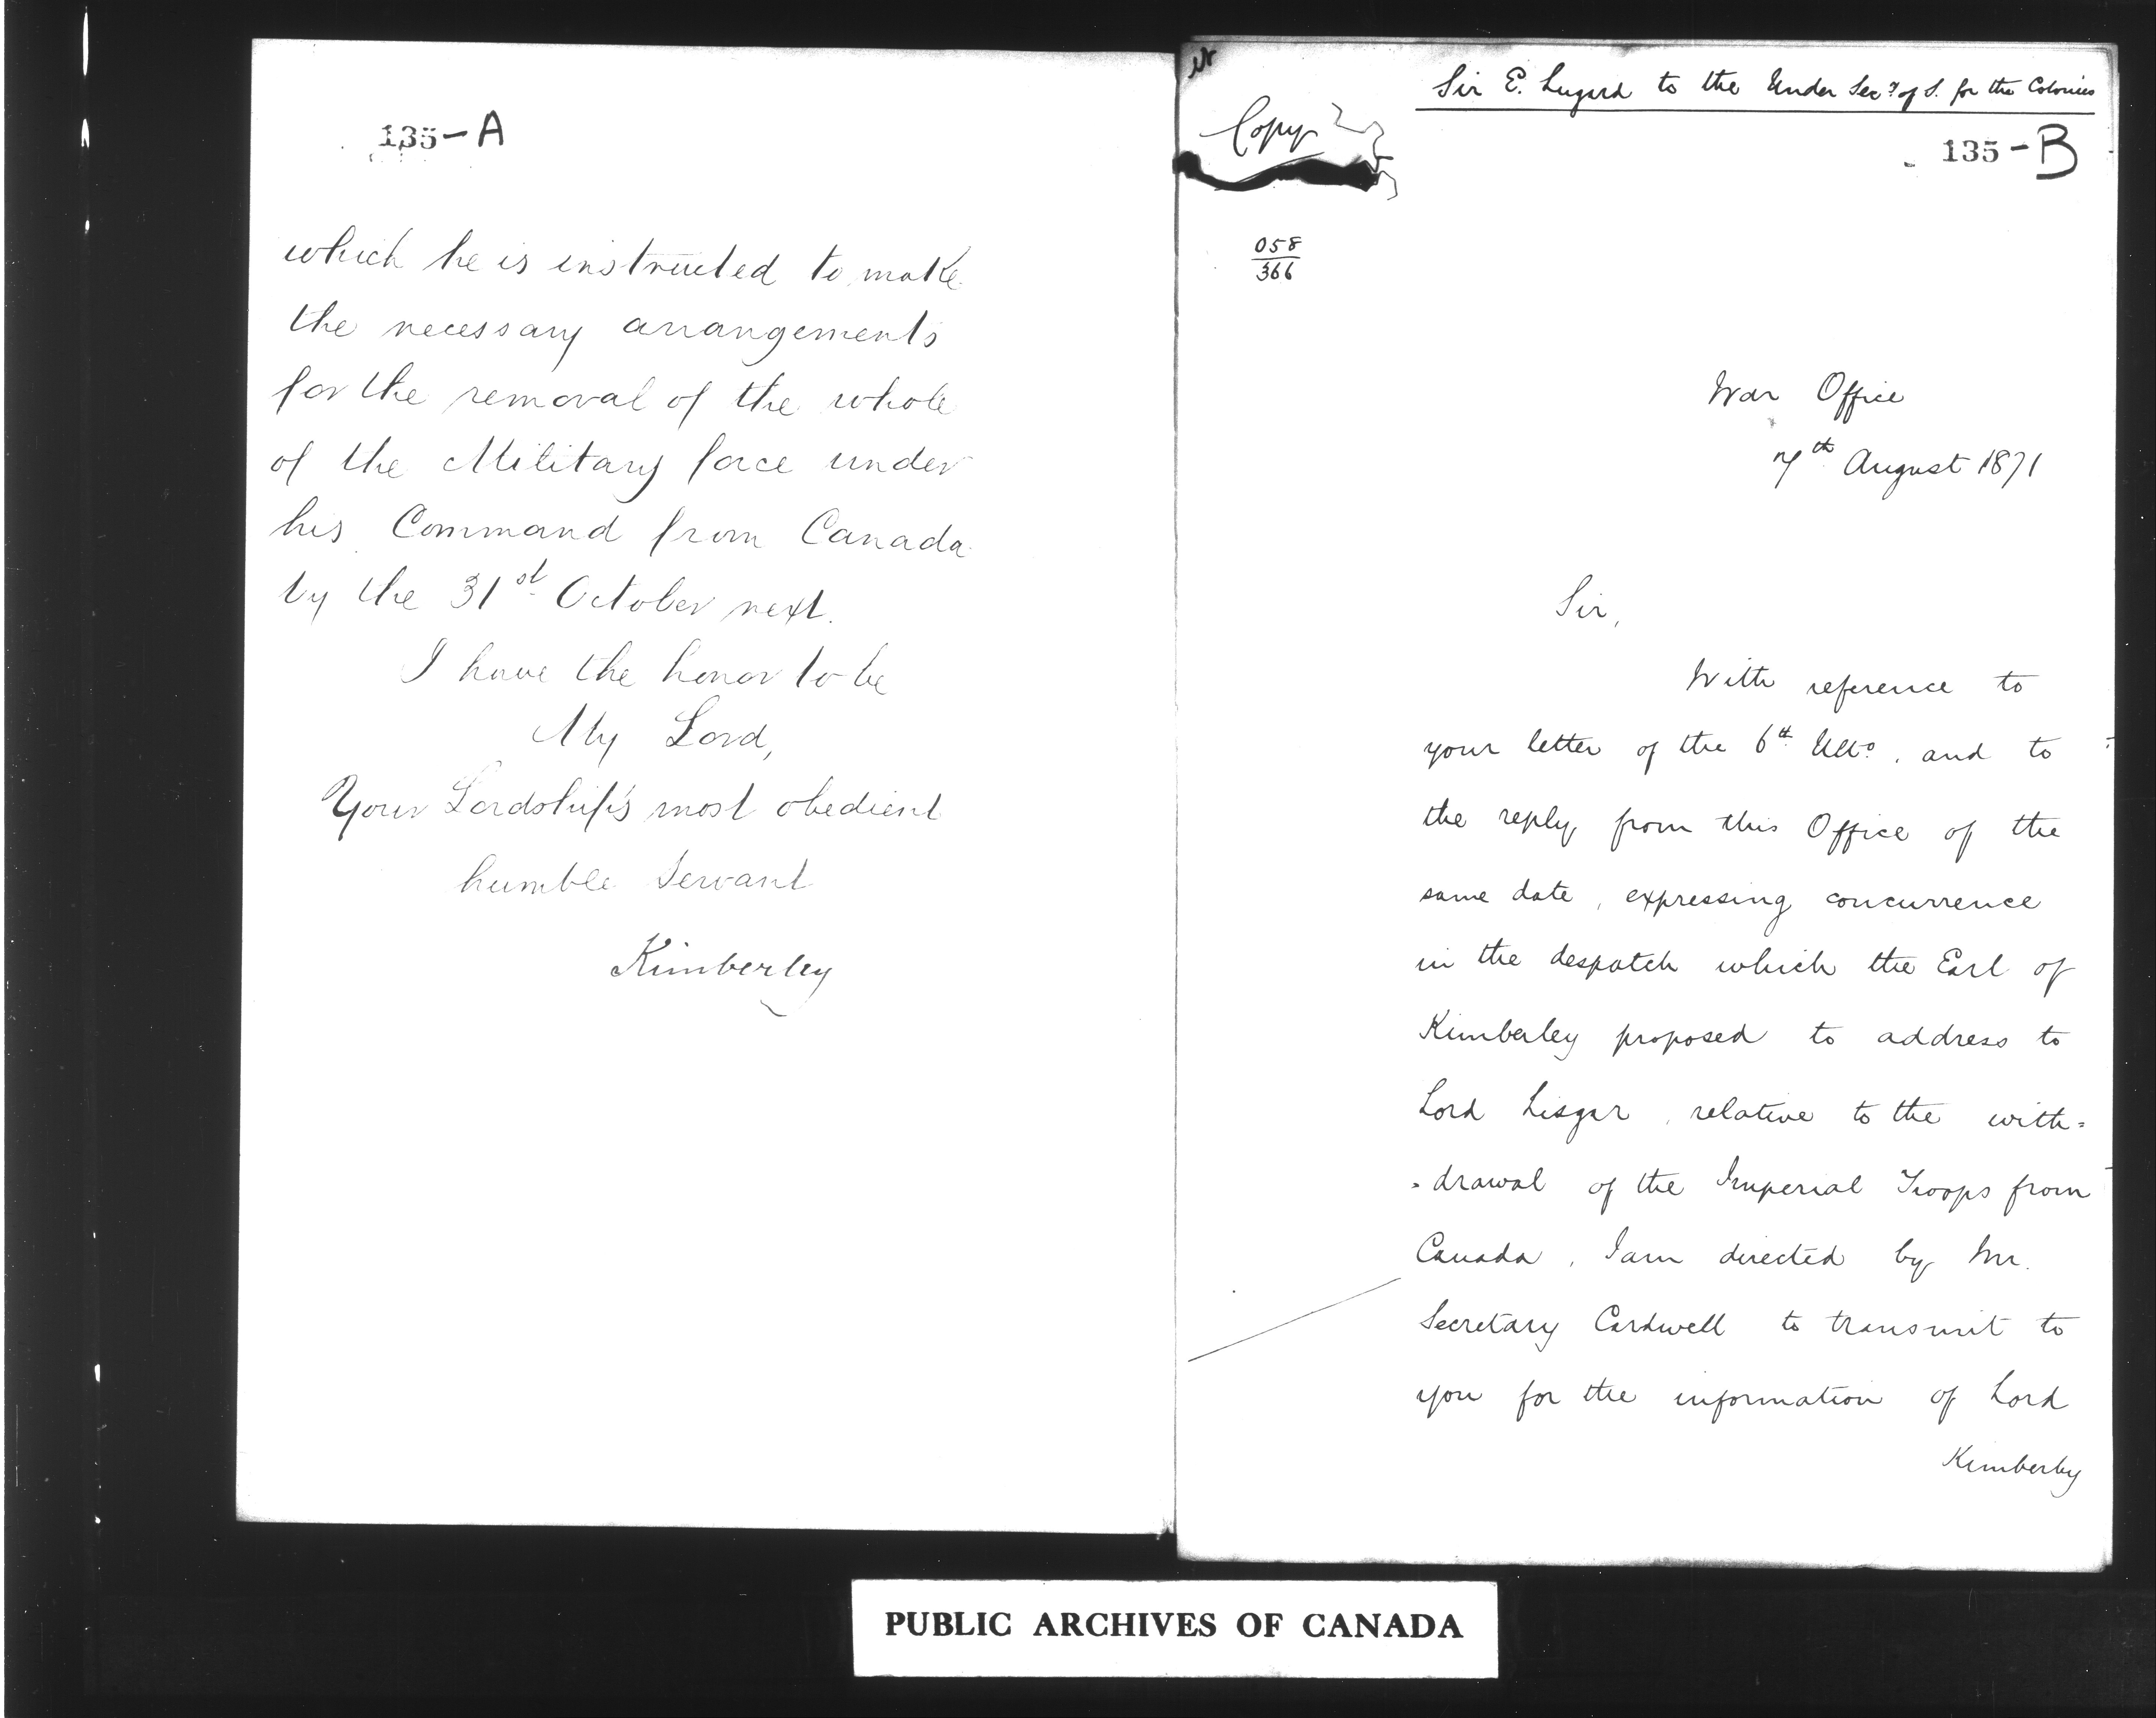 135-A
which he is instructed to make
the necessary arrangements
for the removal of the whole
of the Military force under
his Command from Canada
by the 31st October next.
I have the honor to be
My Lord,
Your Lordship's most obedient
humble Servant
Kimberley
Sir E. Lugard to the Under Secy. of S. for the Colonies
Copy
135-B
058
366
War Office
7th August 1871
Sir,
With reference to
your letter of the 6th Ulto., and to
the reply from this Office of the
same date, expressing concurrence
in the despatch which the Earl of
Kimberley proposed to address to
Lord Lisgar, relative to the with=
=drawal of the Imperial Troops from
Canada, I am directed by Mr.
Secretary Cardwell to transmit to
you for the information of Lord
Kimberley
PUBLIC ARCHIVES OF CANADA